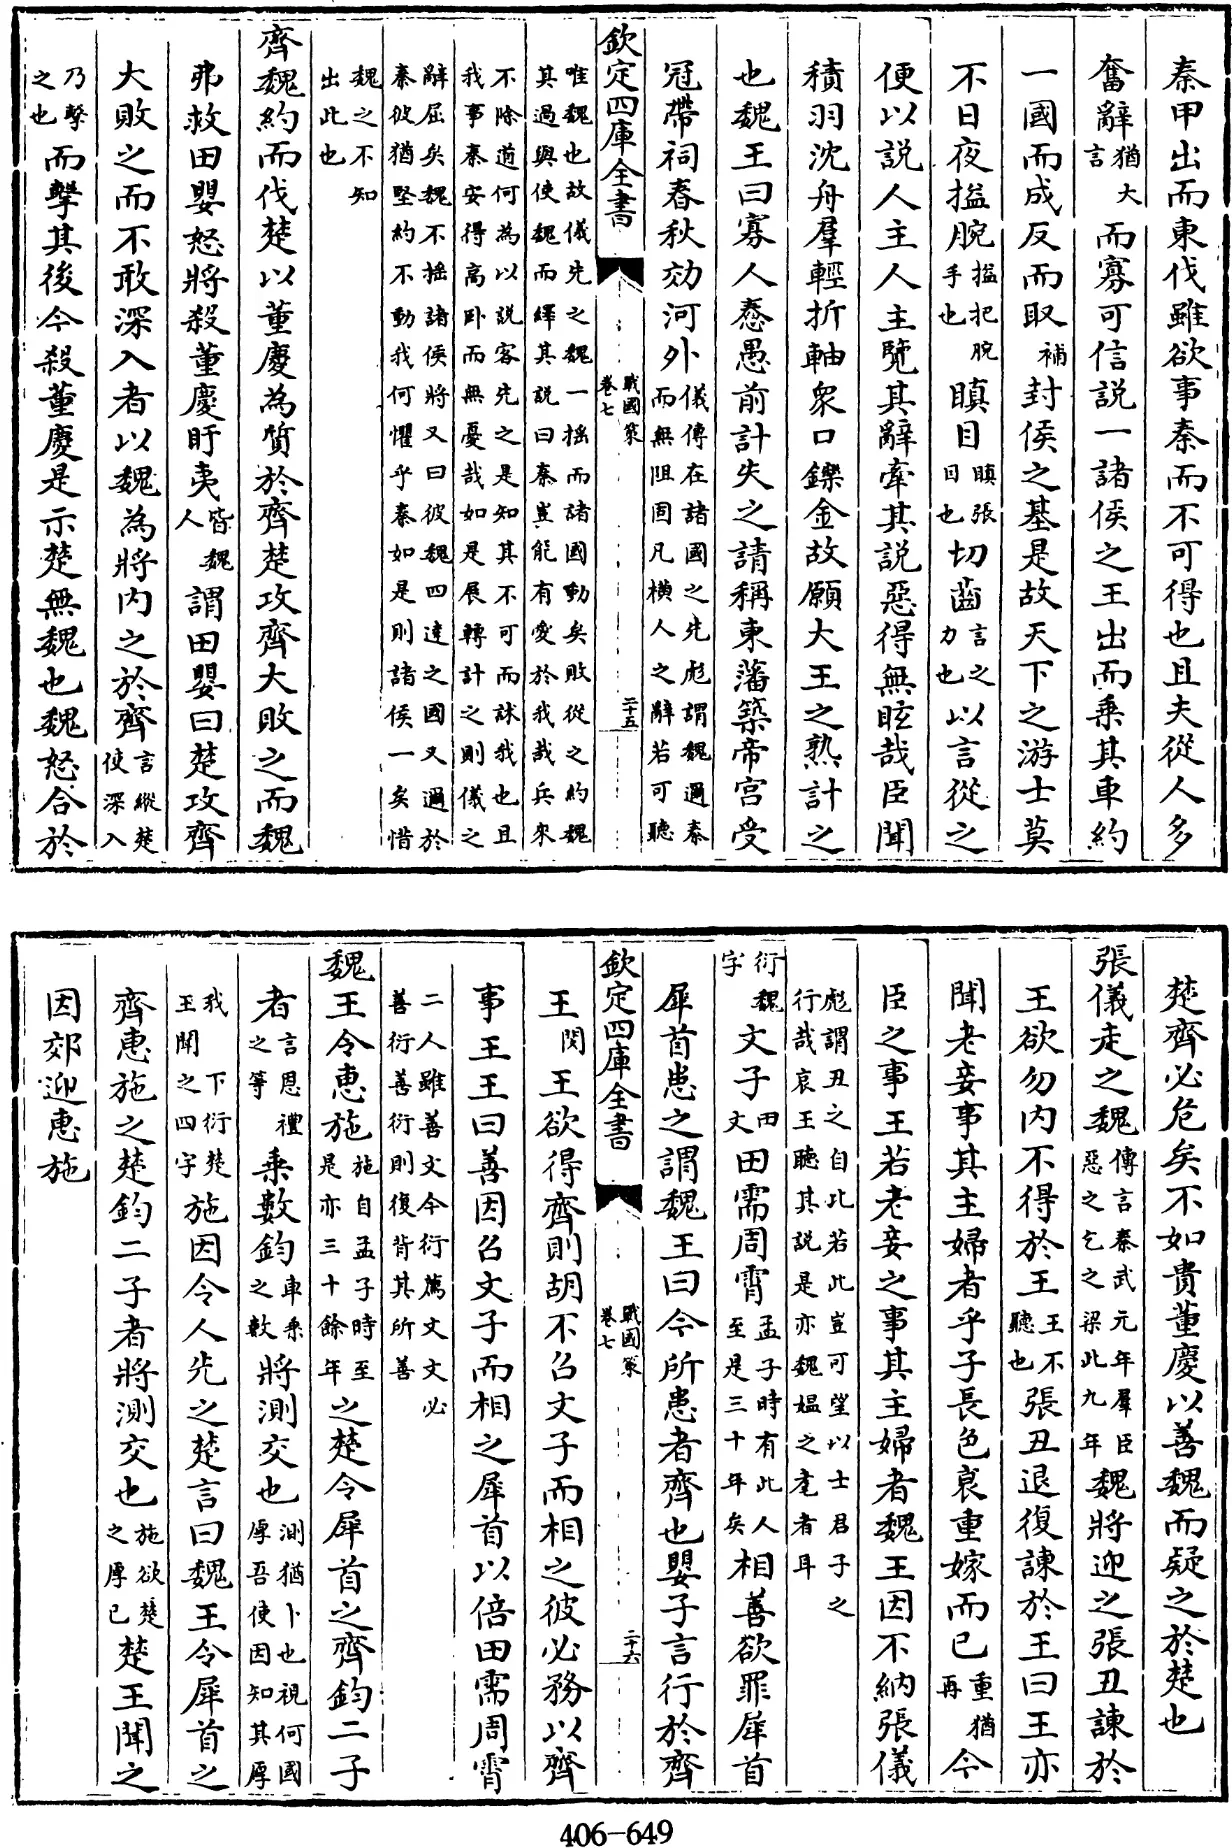 秦甲出而東伐雖欲事秦而不可得也且夫從人多
奮辭猶大言而寡可信説一諸侯之王出而乗其車約
一國而成反而取補封侯之基是故天下之游士莫
不日夜搤腕搤把腕手也瞋目瞋張目也切齒言之力也以言從之
便以説人主人主覽其辭牽其説惡得無眩哉臣聞
積羽沈舟羣輕折軸衆口鑠金故願大王之熟計之
也魏王曰寡人憃愚前計失之請稱東藩築帝宫受
冠帶祠春秋効河外儀傳在諸國之先彪謂魏邇秦而無阻固凡横人之辭若可聽
欽定四庫全書 戰國策卷七 二十五
唯魏也故儀先之魏一揺而諸國動矣敗從之約魏
其過與使魏而繹其説曰秦豈能有愛於我哉兵來
不除道何為以説客先之是知其不可而訹我也且
我事秦安得高卧而無憂哉如是展轉計之則儀之
辭屈矣魏不揺諸侯將又曰彼魏四達之國又邇於
秦彼猶堅約不動我何懼乎秦如是則諸侯一矣惜
魏之不知
出此也
齊魏約而伐楚以董慶為質於齊楚攻齊大敗之而魏
弗救田嬰怒將殺董慶盱夷皆魏人謂田嬰曰楚攻齊
大敗之而不敢深入者以魏為將内之於齊言縱楚使深入
乃擊之也而擊其後今殺董慶是示楚無魏也魏怒合於
楚齊必危矣不如貴董慶以善魏而疑之於楚也
張儀走之魏傳言秦武元年羣臣惡之乞之梁此九年魏將迎之張丑諫於
王欲勿内不得於王王不聽也張丑退復諫於王曰王亦
聞老妾事其主婦者乎子長色衰重嫁而已重猶再今
臣之事王若老妾之事其主婦者魏王因不納張儀
彪謂丑之自比若此豈可望以士君子之
行哉哀王聽其説是亦魏媪之耄者耳
衍魏字文子田文田需周霄孟子時有此人至是三十年矣相善欲罪犀首
犀首患之謂魏王曰今所患者齊也嬰子言行於齊
欽定四庫全書 戰國策卷七 二十六
王閔王欲得齊則胡不召文子而相之彼必務以齊
事王王曰善因召文子而相之犀首以倍田需周霄
二人雖善文今衍薦文文必
善衍善衍則復背其所善
魏王令惠施施自孟子時至是亦三十餘年之楚令犀首之齊鈞二子
者言恩禮之等乗數鈞車乗之數將測交也測猶卜也視何國厚吾使因知其厚
我下衍楚王聞之四字施因令人先之楚言曰魏王令犀首之
齊惠施之楚鈞二子者將測交也施欲楚之厚已楚王聞之
因郊迎惠施
406-649